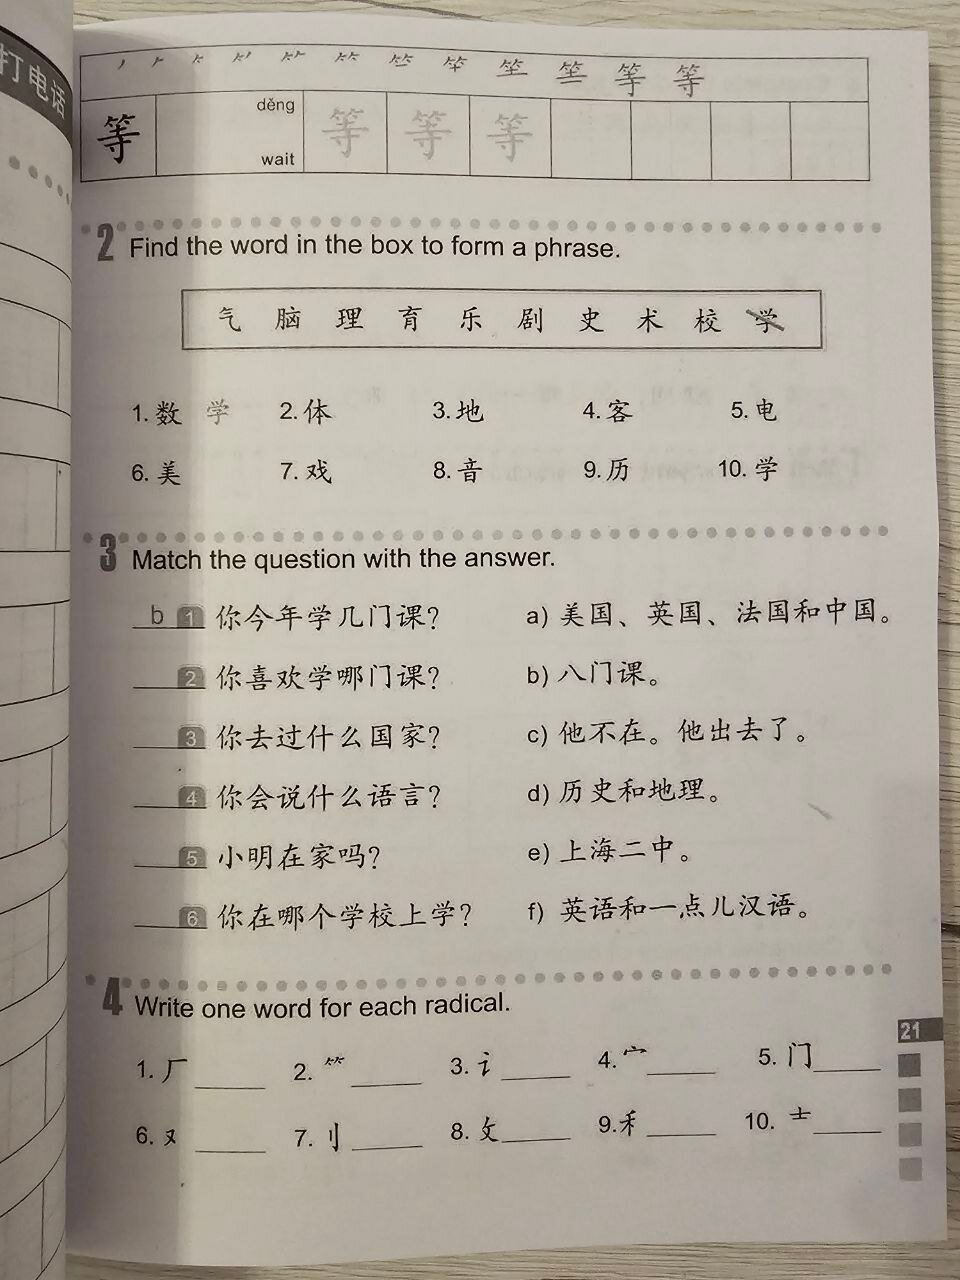 打电话
等 等
等 děng wait 等 等 等
2 Find the word in the box to form a phrase.
气 脑 理 育 乐 剧 史 术 校 学
1. 数 学 2. 体 3. 地 4. 客 5. 电
6. 美 7. 戏 8. 音 9. 历 10. 学
3 Match the question with the answer.
b 1 你今年学几门课? a) 美国、英国、法国和中国。
2 你喜欢学哪门课? b) 八门课。
3 你去过什么国家? c) 他不在。他出去了。
4 你会说什么语言? d) 历史和地理。
5 小明在家吗? e) 上海二中。
6 你在哪个学校上学? f) 英语和一点儿汉语。
4 Write one word for each radical.
1. 厂 2. ⺮ 3. 讠 4. 宀 5. 门
6. 又 7. 刂 8. 攵 9. 禾 10. 龶
21